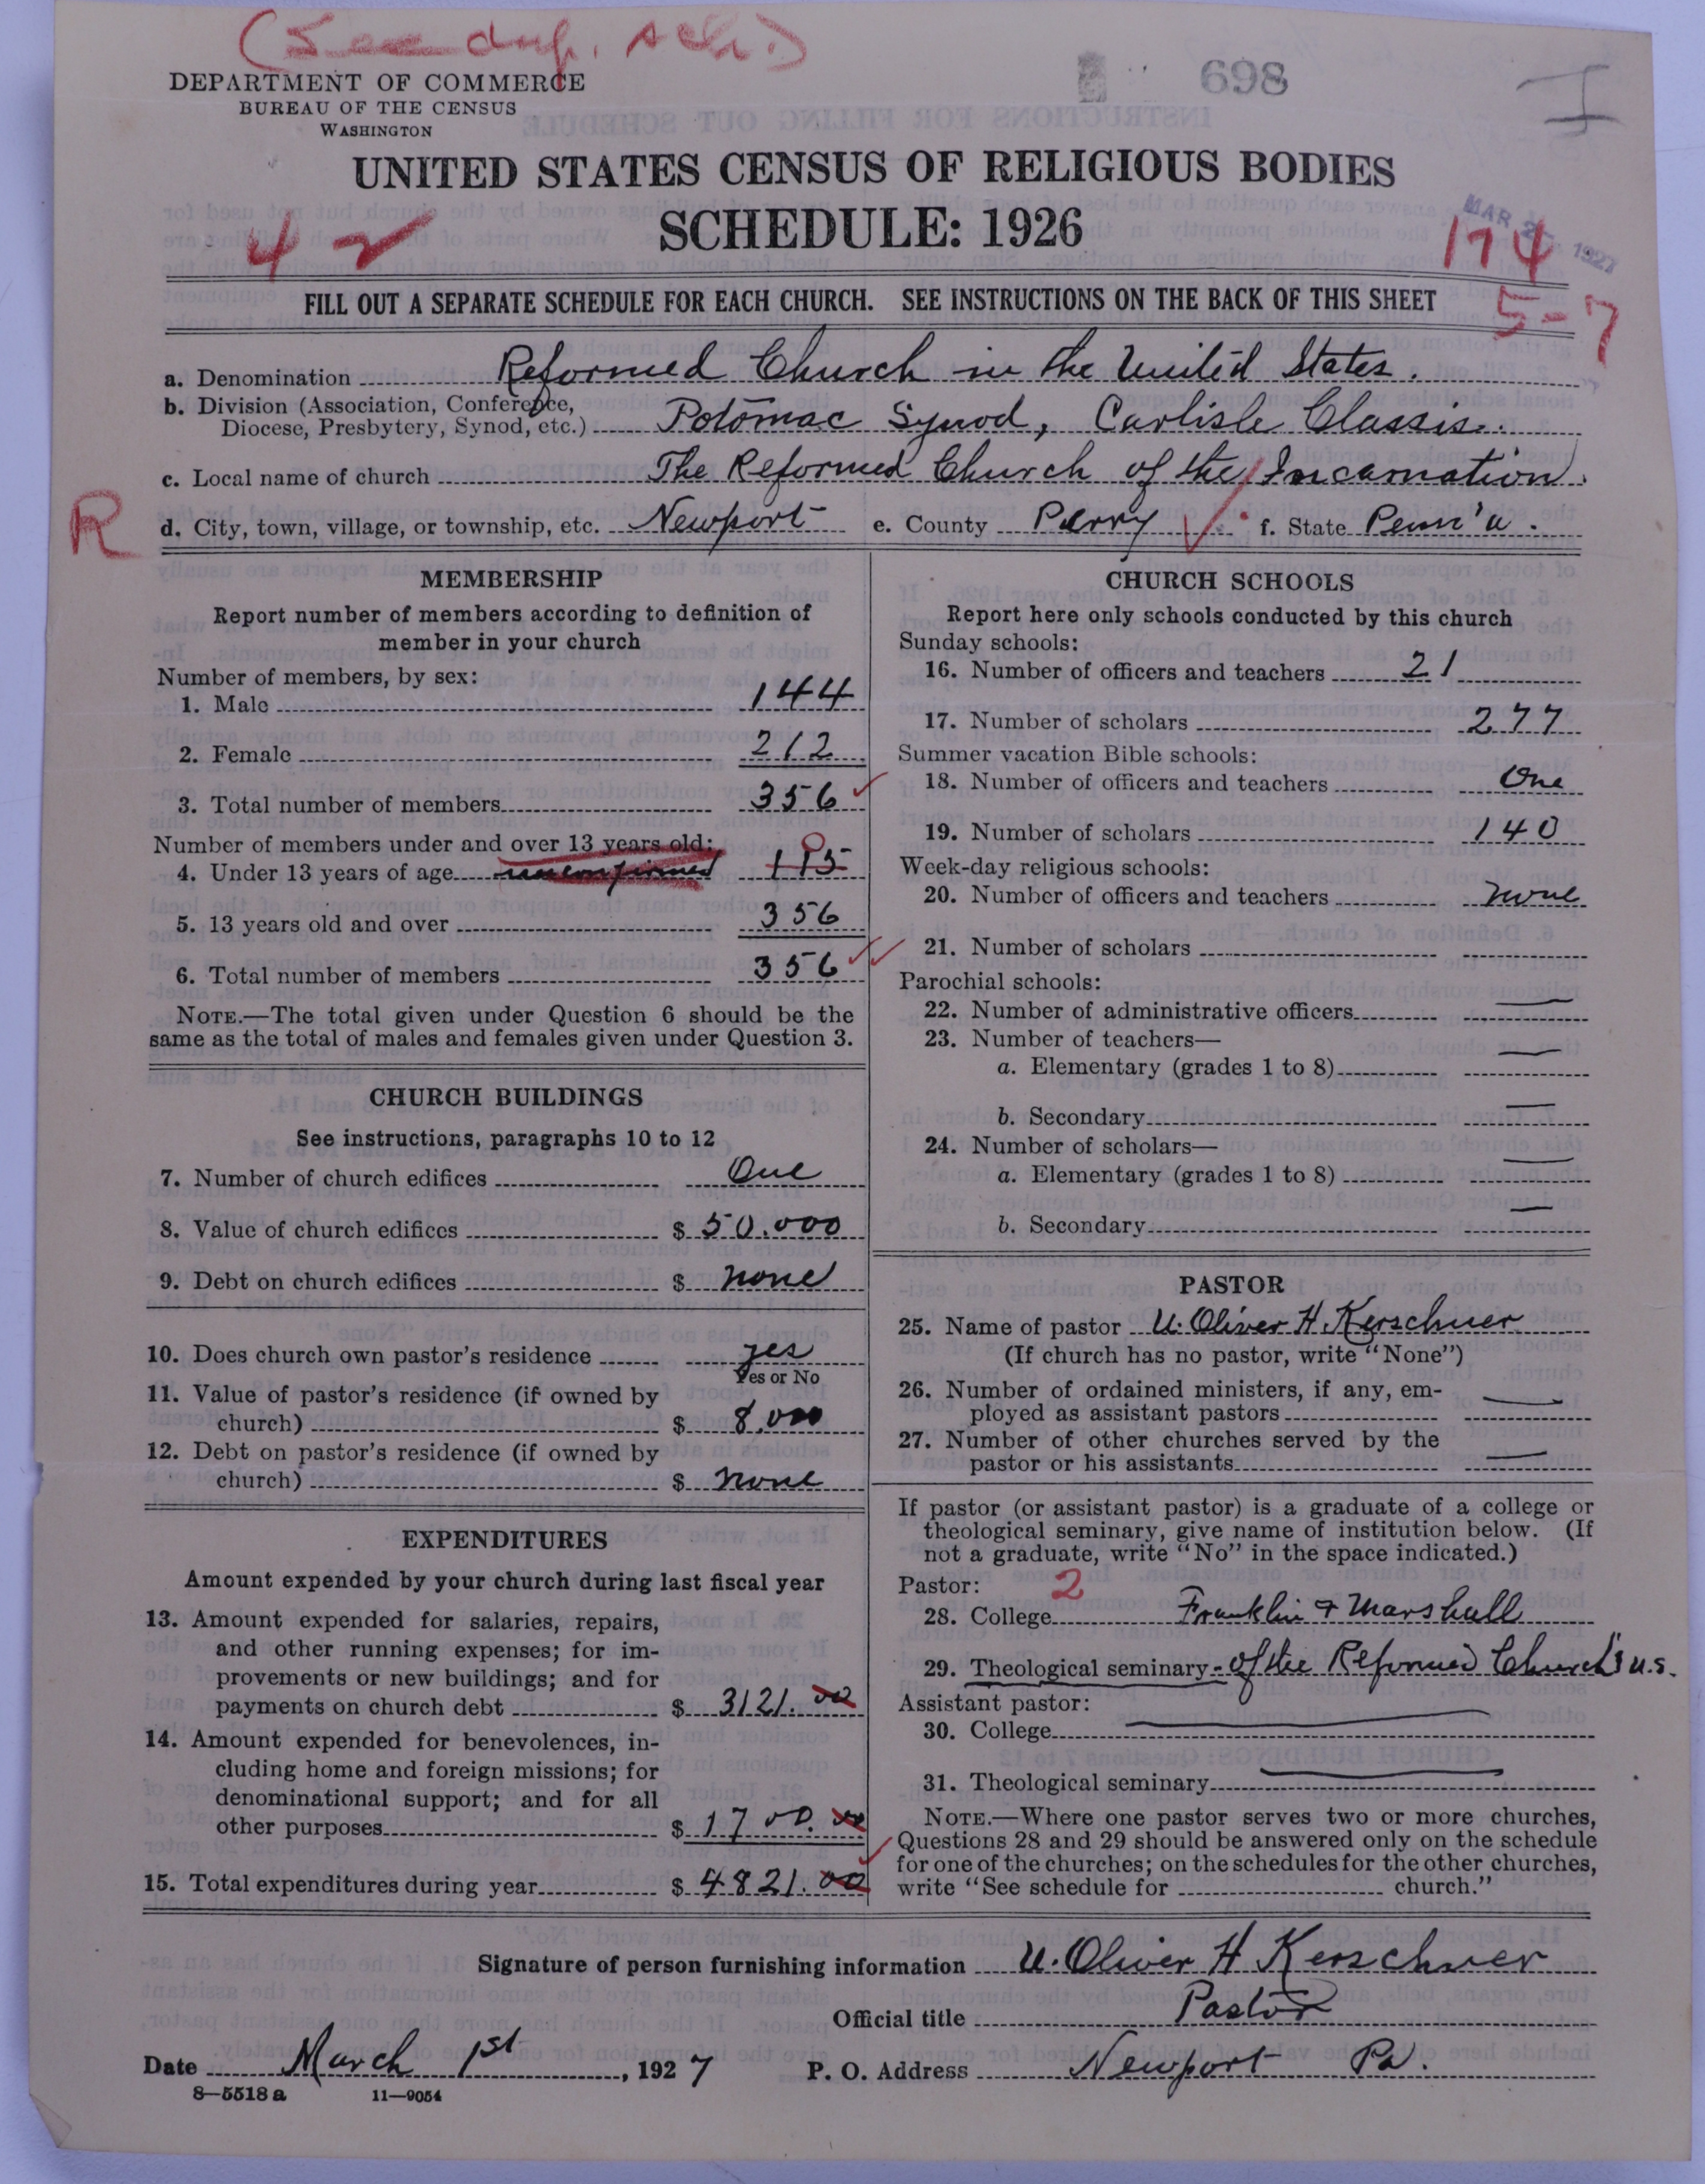 (See dup. sch.)
DEPARTMENT OF COMMERCE
BUREAU OF THE CENSUS
WASHINGTON
698
I
UNITED STATES CENSUS OF RELIGIOUS BODIES
SCHEDULE: 1926
42
MAR 1927
174
5-7
FILL OUT A SEPARATE SCHEDULE FOR EACH CHURCH. SEE INSTRUCTIONS ON THE BACK OF THIS SHEET
a. Denomination Reformed Church in the United States.
b. Division (Association, Conference,
Diocese, Presbytery, Synod, etc.) Potomac Synod, Carlisle Classis.
c. Local name of church The Reformed Church of the Incarnation.
R
d. City, town, village, or township, etc. Newport e. County Perry f. State Penn'a.
MEMBERSHIP
Report number of members according to definition of
member in your church
Number of members, by sex:
1. Male 144
2. Female 212
3. Total number of members 356
Number of members under and over 13 years old:
4. Under 13 years of age unconfirmed
5. 13 years old and over 356
6. Total number of members 356
NOTE.—The total given under Question 6 should be the
same as the total of males and females given under Question 3.
CHURCH BUILDINGS
See instructions, paragraphs 10 to 12
7. Number of church edifices One
8. Value of church edifices $ 50.000
9. Debt on church edifices $ none
10. Does church own pastor's residence yes
Yes or No
11. Value of pastor's residence (if owned by
church) $ 8,000
12. Debt on pastor's residence (if owned by
church) $ none
EXPENDITURES
Amount expended by your church during last fiscal year
13. Amount expended for salaries, repairs,
and other running expenses; for im-
provements or new buildings; and for
payments on church debt $ 3121.00
14. Amount expended for benevolences, in-
cluding home and foreign missions; for
denominational support; and for all
other purposes $ 1700.00
15. Total expenditures during year $ 4821.00
CHURCH SCHOOLS
Report here only schools conducted by this church
Sunday schools:
16. Number of officers and teachers 21
17. Number of scholars 277
Summer vacation Bible schools:
18. Number of officers and teachers One
19. Number of scholars 140
Week-day religious schools:
20. Number of officers and teachers none
21. Number of scholars
Parochial schools:
22. Number of administrative officers
23. Number of teachers—
a. Elementary (grades 1 to 8)
b. Secondary
24. Number of scholars—
a. Elementary (grades 1 to 8)
b. Secondary
PASTOR
25. Name of pastor U. Oliver H. Kerschner
(If church has no pastor, write "None")
26. Number of ordained ministers, if any, em-
ployed as assistant pastors
27. Number of other churches served by the
pastor or his assistants
If pastor (or assistant pastor) is a graduate of a college or
theological seminary, give name of institution below. (If
not a graduate, write "No" in the space indicated.)
Pastor: 2
28. College Franklin & Marshall
29. Theological seminary - of the Reformed Church U.S.
Assistant pastor:
30. College
31. Theological seminary
NOTE.—Where one pastor serves two or more churches,
Questions 28 and 29 should be answered only on the schedule
for one of the churches; on the schedules for the other churches,
write "See schedule for church."
Signature of person furnishing information U. Oliver H Kerschner
Official title Pastor
Date March 1st, 1927 P. O. Address Newport Pa.
8—5518 a 11—9054